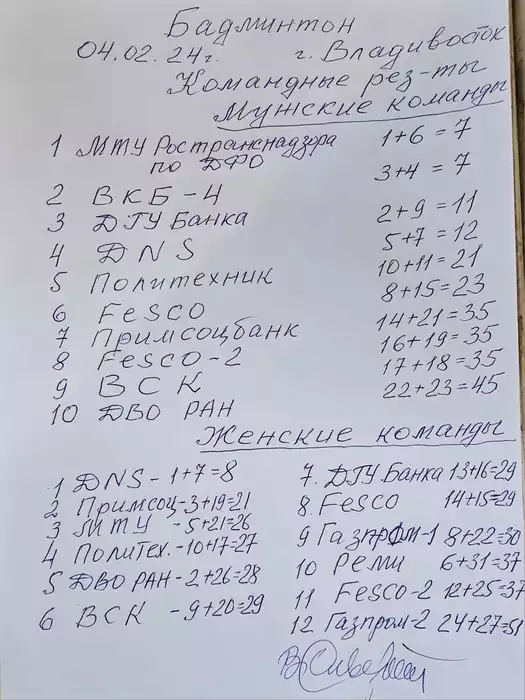 Бадминтон
04.02.24г. г. Владивосток
Командные рез-ты
Мужские команды
1 МТУ Ространснадзора 1+6=7
по ДФО
2 ВКБ-4 3+4=7
3 ДГУ Банка 2+9=11
4 DNS 5+7=12
5 Политехник 10+11=21
6 FESCO 8+15=23
7 Примсоцбанк 14+21=35
8 FESCO-2 16+19=35
9 ВСК 17+18=35
10 ДВО РАН 22+23=45
Женские команды
1 DNS-1+7=8
2 Примсоц-3+19=21
3 МТУ -5+21=26
4 Политех.-10+17=27
5 ДВО РАН-2+26=28
6 ВСК -9+20=29
7. ДГУ Банка 13+16=29
8. FESCO 14+15=29
9 Газпром-1 8+22=30
10 Реми 6+31=37
11 FESCO-2 12+25=37
12 Газпром-2 24+27=51